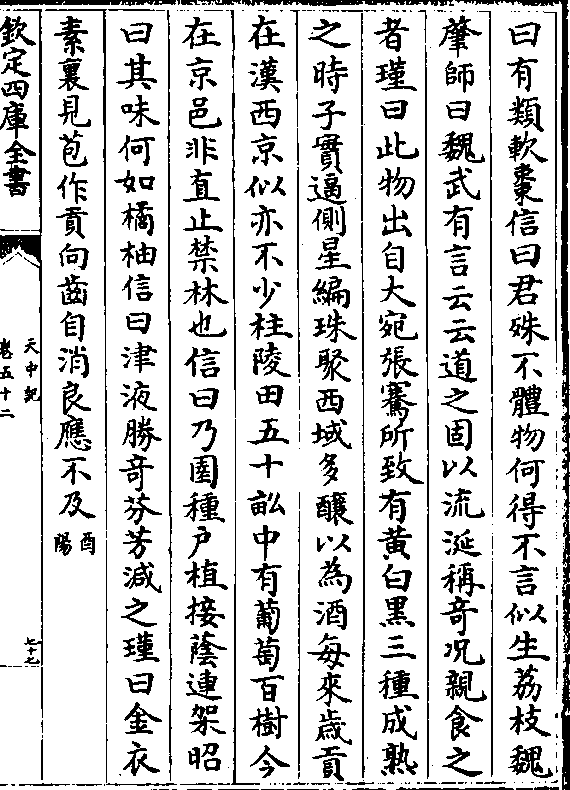 曰有類軟棗信曰君殊不體物何得不言似生荔枝魏
肇師曰魏武有言云云道之固以流涎稱奇況親食之
者瑾曰此物出自大宛張騫所致有黄白黑三種成熟
之時子實逼側星編珠聚西域多釀以為酒每來歳貢
在漢西京似亦不少杜陵田五十畝中有葡萄百樹今
在京邑非直止禁林也信曰乃園種户植接蔭連架昭
曰其味何如橘柚信曰津液勝奇芬芳減之瑾曰金衣
素裏見苞作貢向齒自消良應不及酉陽
欽定四庫全書
天中記
卷五十二
七十九